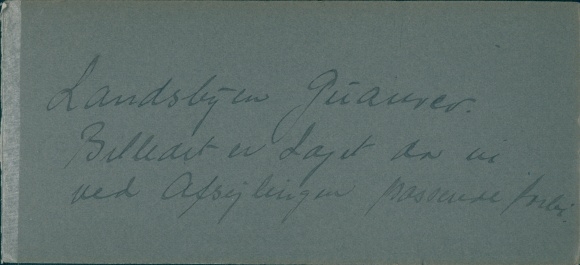 Landsbyen Guanrer.
Billedet er Taget da vi
ved Afsejlingen passerede forbi.